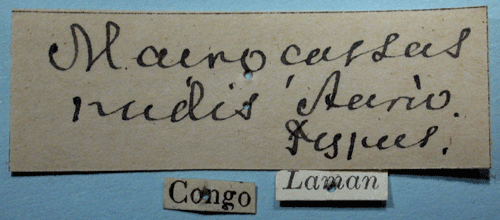 Macrocossus
rudis Auriv.
Typus.
Congo
Laman